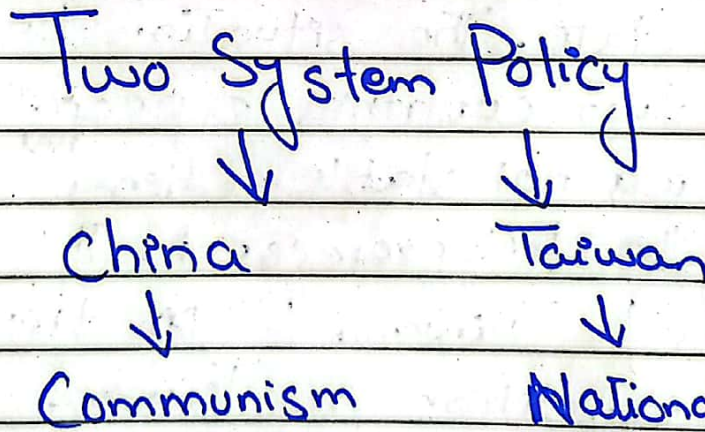 Two System Policy
↓ ↓
China Taiwan
↓ ↓
Communism Nationa